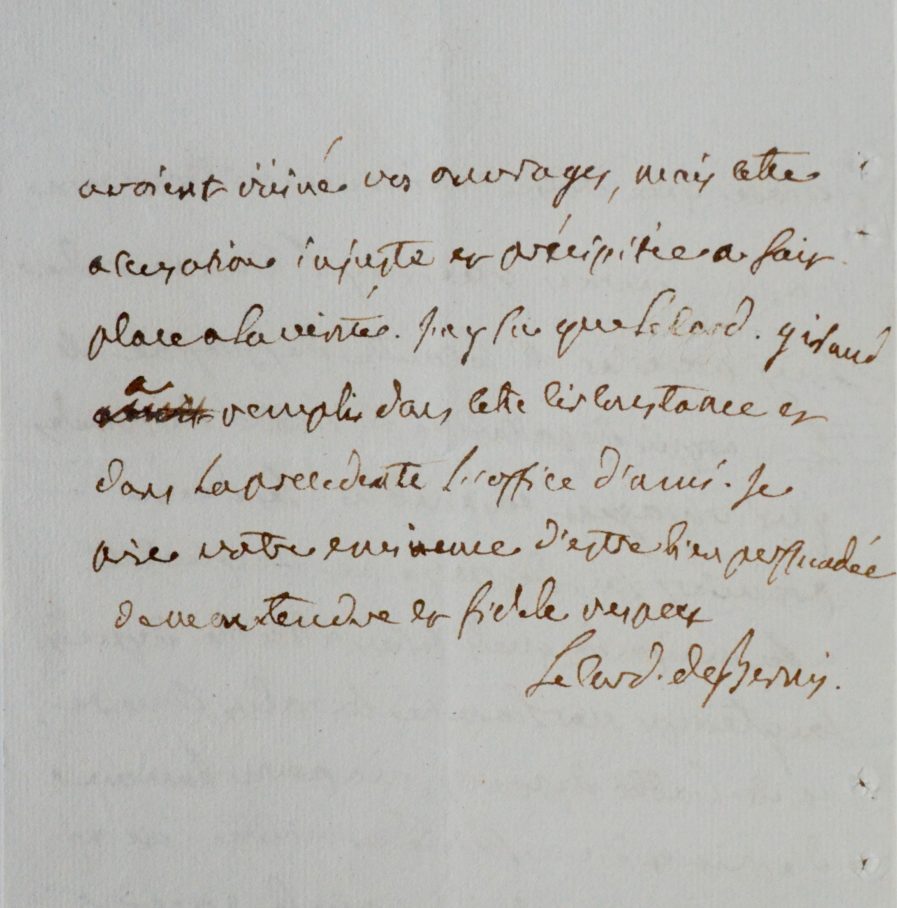 avoient ruiné vos ouvrages, mais cette
accusation injuste et précipitée a fait
place a la verité. J'ay su que le Card. giraud
a rempli dans cette circonstance et
dans la precedente l'office d'ami. Je
prie votre eminence d'estre bien persuadée
de mon tendre et fidele respect
Le Card. de Bernis.